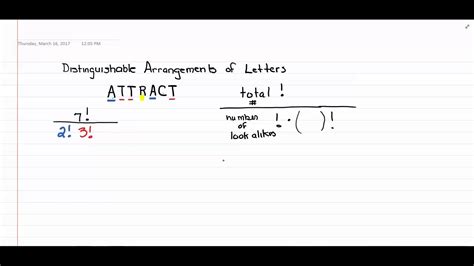 Thursday, March 16, 2017 12:05 PM
Distinguishable Arrangements of Letters
ATTRACT
7!
2! 3!
total !
#
number
of
look alikes
! · ( ) !